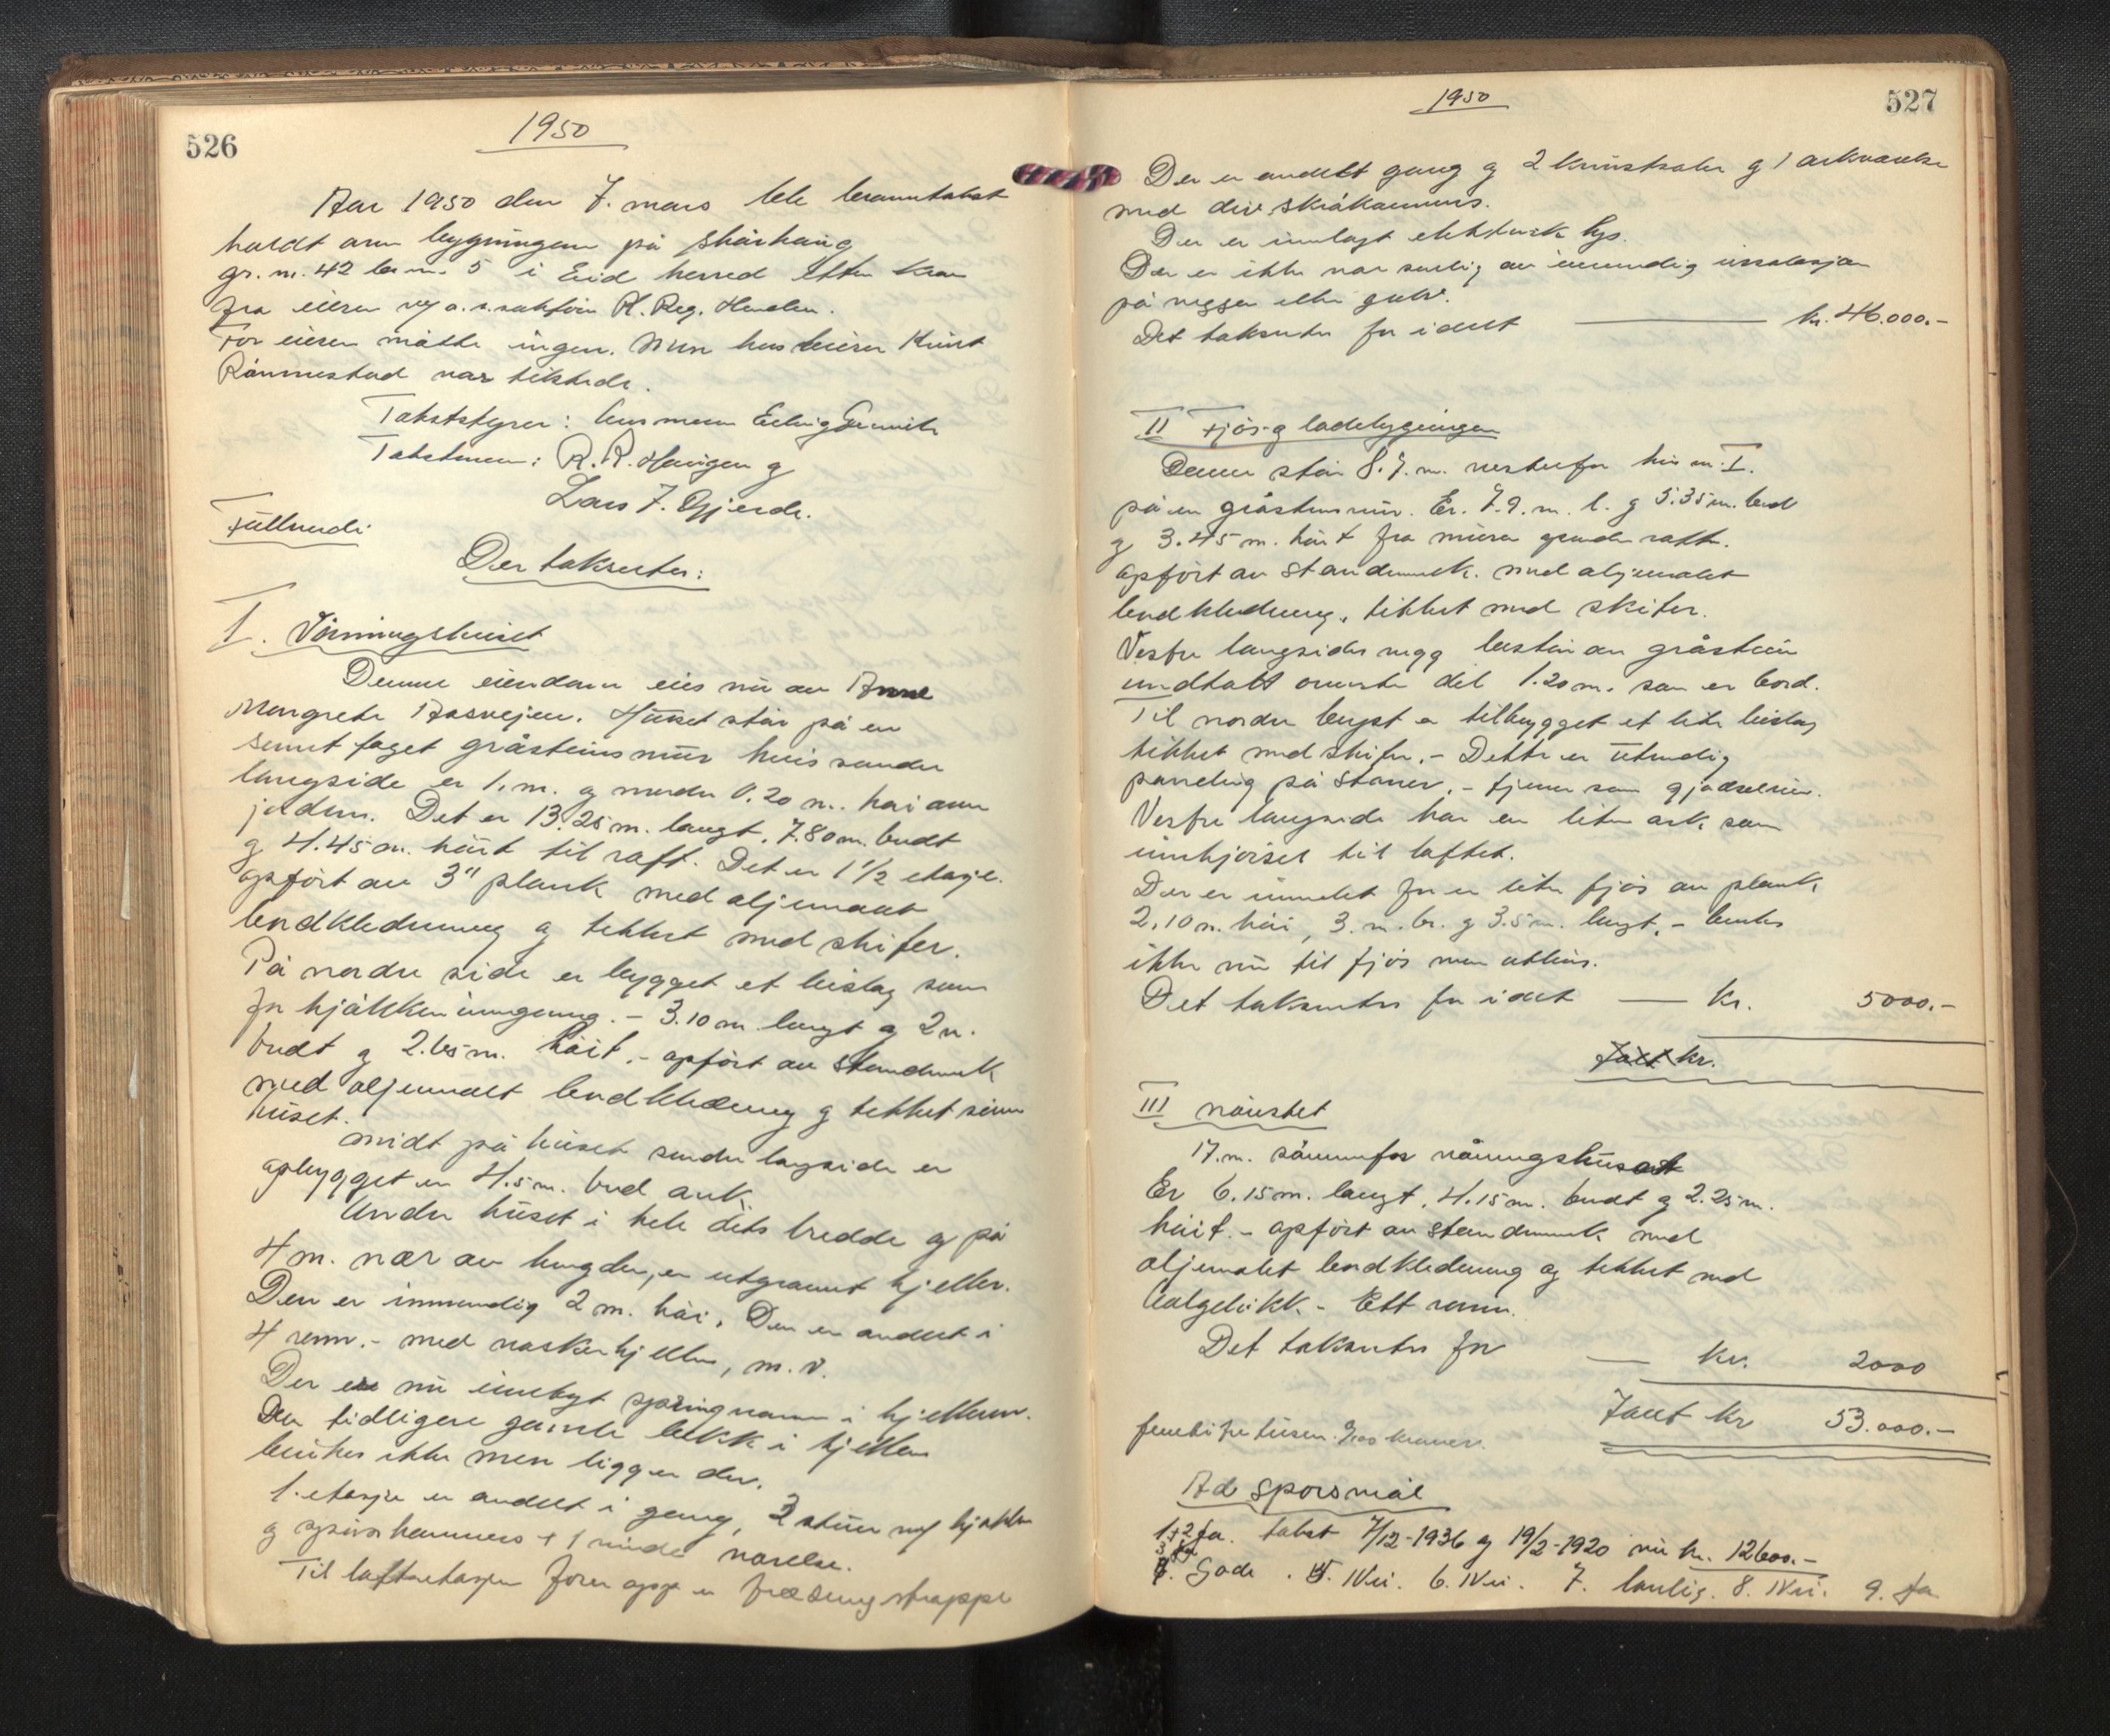 526
1950
Aar 1950 den 7. mars ble branntakst
holdt over bygningen på
gr. nr. 42 br. nr. 5 i Eid herred etter krav
fra eieren v/ o. r. sakfører R. Reg.
For eieren møtte ingen. Men husleieren Knut
Rönnestad var tilstede.
Takststyrer: lensmann Erling
Takstmenn: R. R. Haugen og
Lars J. Gjerde.
Fullverdi
Der takseertes:
I. Våningshuset
Denne eiendom eies nu av Anne
Margrete Aasvejen. Huset står på en
sement fuget gråsteinsmur hvis søndre
langside er 1. m. og nordre 0.20 m. høi over
jorden. Det er 13.25 m. langt, 7.80 m. bredt
og 4.45 m. høit til raft. Det er 1 1/2 etasje.
opført av 3" plank med oljemalt
bordkledning og tekket med skifer.
På nordre side er bygget et bislag som
for kjøkkeninngang. - 3.10 m. langt og 2 m.
bredt og 2.65 m. høit, - opført av stenderverk
med oljemalt bordkledning og tekket som
huset.
Midt på husets søndre langside er
opbygget en 4.5 m. bred ark.
Under huset i hele dets bredde og på
4 m. nær av lengden, er utgravet kjeller.
Den er innvendig 2 m. høi. Den er avdelt i
4 rom. - med vaskekjeller, m. v.
Der er nu innlagt springvann i kjelleren.
Den tidligere gamle bekk i kjelleren
brukes ikke men ligger der.
1. etasje er avdelt i gang, 2 stuer og kjøkken
og spiskammers + 1 mindre værelse.
Til loftsetasjen fører opp en trapp
527
1950
Der er avdelt gang og 2 kvistsaler og 1 arkværelse
med div. skråkammers.
Der er innlagt elektrisk lys.
Der er ikke noe særlig av innvendig isolasjon
på vegger eller gulv.
Det takseres for i det kr. 46.000.-
II Fjös- og ladebygningen
Denne står 8.7. m. vestenfor hus nr. I.
på en gråsteinsmur. Er 7.9. m. l. og 5.35 m. bred
og 3.45 m. høit fra murens grunder raft.
Opført av standerverk. med oljemalet
bordkledning, tekket med skifer.
Vestre langsides vegg består av gråstein
undtatt øverste del 1.20 m. som er bord.
Til nordre langst er tilbygget et lite bislag
tekket med skifer. - Dette er utvendig
på staver, - tjener som gjødselrum.
Vestre langside har en liten ark som
innkjørsel til loftet.
Der er innredet for en liten fjös av plank,
2.10 m. høi, 3. m. br. og 3.5 m. langt, - brukes
ikke nu til fjös men uthus.
Det takseres for i det - kr. 5000.-
Ialt kr.
III naustet
17. m. sønnenfor våningshuset
Er 6.15 m. langt, 4.15 m. bredt og 2.25 m.
høit. - opført av stenderverk med
oljemalet bordkledning og tekket med
bølgeblikk. - Ett rom.
Det takseres for - kr. 2000
Ialt kr 53.000.-
femtitre tusen 0/100 kroner.
Ad spørsmål
1+2 Ja. takst 7/12-1936 og 19/2-1920 nu kr. 12600.-
3 Ja
4. Gode. 5. Nei. 6. Nei. 7. lovlig. 8. Nei. 9. Ja